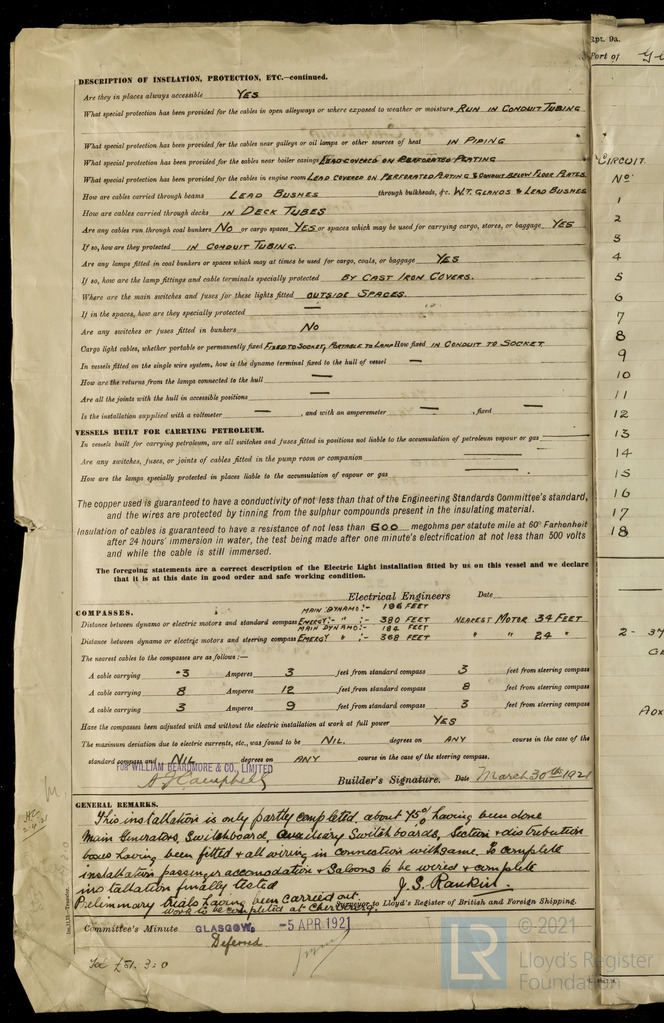 DESCRIPTION OF INSULATION, PROTECTION, ETC.—continued.
Are they in places always accessible YES
What special protection has been provided for the cables in open alleyways or where exposed to weather or moisture RUN IN CONDUIT TUBING
What special protection has been provided for the cables near galleys or oil lamps or other sources of heat IN PIPING
What special protection has been provided for the cables near boiler casings LEAD COVERED ON PERFORATED PLATING
What special protection has been provided for the cables in engine room LEAD COVERED ON PERFORATED PLATING & CONDUIT BELOW FLOOR PLATES
How are cables carried through beams LEAD BUSHES through bulkheads, &c. W.T. GLANDS & LEAD BUSHES
How are cables carried through decks IN DECK TUBES
Are any cables run through coal bunkers NO or cargo spaces YES or spaces which may be used for carrying cargo, stores, or baggage YES
If so, how are they protected IN CONDUIT TUBING.
Are any lamps fitted in coal bunkers or spaces which may at times be used for cargo, coals, or baggage YES
If so, how are the lamp fittings and cable terminals specially protected BY CAST IRON COVERS.
Where are the main switches and fuses for these lights fitted OUTSIDE SPACES.
If in the spaces, how are they specially protected —
Are any switches or fuses fitted in bunkers NO
Cargo light cables, whether portable or permanently fixed FIXED TO SOCKET, PORTABLE TO LAMP How fixed IN CONDUIT TO SOCKET
In vessels fitted on the single wire system, how is the dynamo terminal fixed to the hull of vessel —
How are the returns from the lamps connected to the hull —
Are all the joints with the hull in accessible positions —
Is the installation supplied with a voltmeter —, and with an amperemeter —, fixed —
VESSELS BUILT FOR CARRYING PETROLEUM.
In vessels built for carrying petroleum, are all switches and fuses fitted in positions not liable to the accumulation of petroleum vapour or gas
Are any switches, fuses, or joints of cables fitted in the pump room or companion —
How are the lamps specially protected in places liable to the accumulation of vapour or gas —
The copper used is guaranteed to have a conductivity of not less than that of the Engineering Standards Committee's standard,
and the wires are protected by tinning from the sulphur compounds present in the insulating material.
Insulation of cables is guaranteed to have a resistance of not less than 600 megohms per statute mile at 60° Farhenheit
after 24 hours' immersion in water, the test being made after one minute's electrification at not less than 500 volts
and while the cable is still immersed.
The foregoing statements are a correct description of the Electric Light installation fitted by us on this vessel and we declare
that it is at this date in good order and safe working condition.
Electrical Engineers Date
COMPASSES.
MAIN DYNAMO:- 196 FEET
Distance between dynamo or electric motors and standard compass EMERGY:- " :- 380 FEET NEAREST MOTOR 34 FEET
MAIN DYNAMO:- 184 FEET
Distance between dynamo or electric motors and steering compass EMERGY " :- 368 FEET " " 24 "
The nearest cables to the compasses are as follows:—
A cable carrying ·3 Amperes 3 feet from standard compass 3 feet from steering compass
A cable carrying 8 Amperes 12 feet from standard compass 8 feet from steering compass
A cable carrying 3 Amperes 9 feet from standard compass 3 feet from steering compass
Have the compasses been adjusted with and without the electric installation at work at full power YES
The maximum deviation due to electric currents, etc., was found to be NIL. degrees on ANY course in the case of the
standard compass and NIL degrees on ANY course in the case of the steering compass.
FOR WILLIAM BEARDMORE & CO., LIMITED
A J Campbell Builder's Signature. Date March 30th 1921
GENERAL REMARKS.
This installation is only partly completed about 75% having been done
Main Generators, Switchboard, Auxiliary Switchboards, Section & distribution
boxes having been fitted & all wiring in connection with same. To complete
installation passenger accomodation & Saloons to be wired & complete
installation finally tested
J. S. Rankin.
Prelimmary trials having been carried out.
Surveyor to Lloyd's Register of British and Foreign Shipping.
work to be completed at Cherbourg.
Committee's Minute GLASGOW. -5 APR 1921
Deferred
£51. 3: 0
Rpt. 9a.
Port of
CIRCUIT
No.
1
2
3
4
5
6
7
8
9
10
11
12
13
14
15
16
17
18
© 2021
LR
Lloyd's Register
Foundation